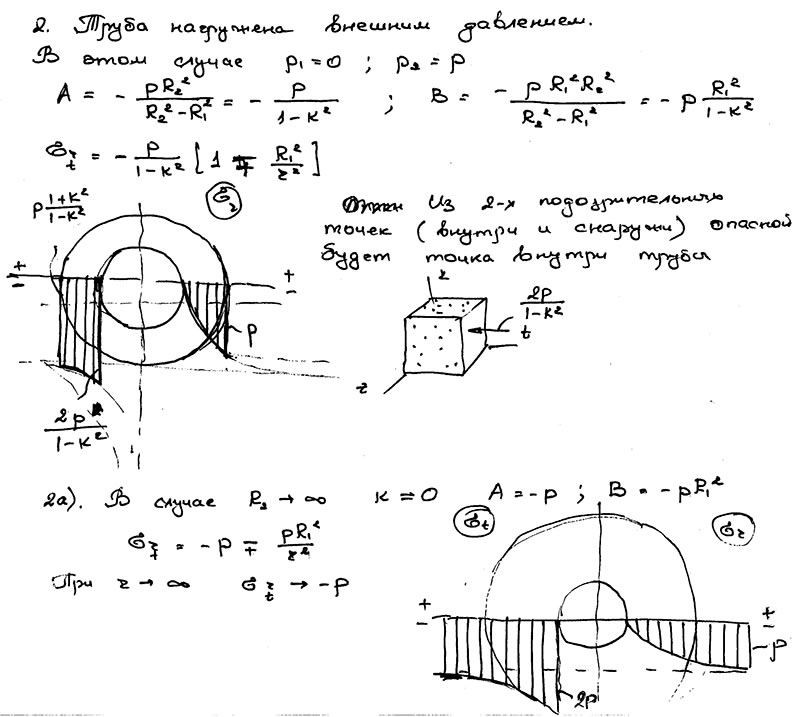 2. Труба нагружена внешним давлением.
В этом случае p₁=0 ; p₂ = p
A = - pR₂² / (R₂²-R₁²) = - p / (1-к²) ; B = - p R₁²R₂² / (R₂²-R₁²) = - p R₁² / (1-к²)
σ r t = - p / (1-к²) [ 1 ∓ R₁² / r² ]
p (1+к²) / (1-к²)
σ r
Из 2-х подозрительных
точек (внутри и снаружи) опасной
будет точка внутри трубы
+ -
+ -
p
2p / (1-к²)
z
2p / (1-к²)
t
r
2а). В случае R₂ → ∞ к = 0 A = -p ; B = -pR₁²
σ r t = -p ∓ pR₁² / r²
При r → ∞ σ r t → -p
σ t
σ r
+ -
+ -
p
2p